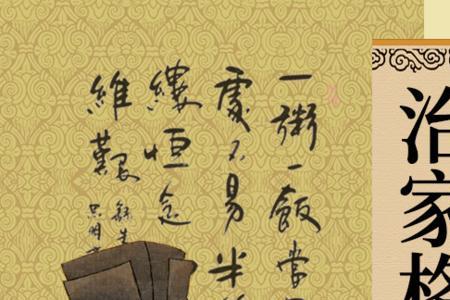 治家格
一粥一飯當
處不易半
縷恒念
維艱